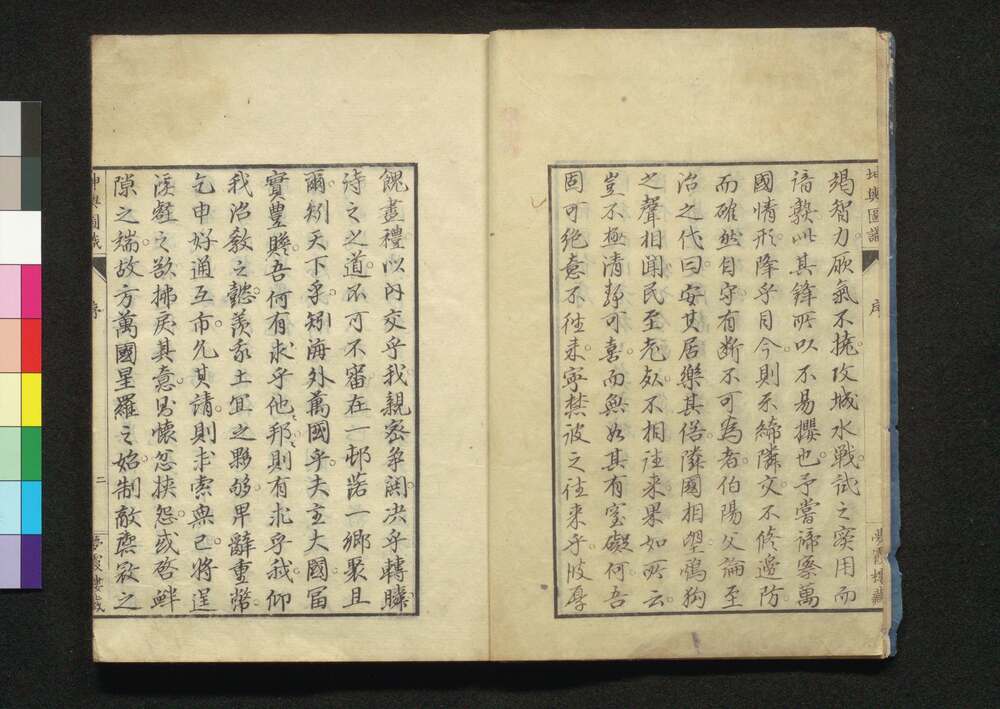 坤輿圖識
序
夢霞樓藏
竭智力厥氣不撓攻城水戰試之實用而
諳熟此其鋒所以不易攖也予嘗諦察萬
國情形降乎目今則不締隣交不修邊防
而確然自守有斷不可為者伯陽父論至
治之代曰安其居樂其俗隣國相望鷄狗
之聲相聞民至老死不相往来果如所云
豈不極清静可喜而無如其有窒礙何吾
固可絶意不往来寧禁彼之往来乎故厚
餽盡禮以内交乎我親密爭闘决乎轉瞬
待之之道不可不審在一邨落一鄉聚且
爾矧天下乎矧海外萬國乎夫主大國富
實豊贍吾何有求乎他邦則有求乎我仰
我治敎之懿羨我土宜之夥够卑辭重幣
乞申好通互市允其請則求索無已將逞
溪壑之欲拂戾其意則懷忿挾怨或啓衅
隙之端故方萬國星羅之始制敵禦寇之
坤輿圖識
序
二
夢霞樓藏